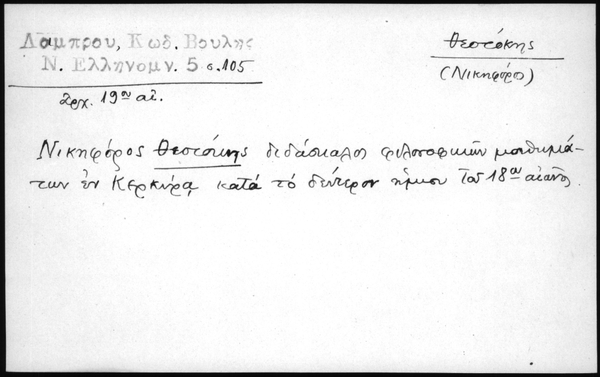 Λάμπρου, Κωδ. Βουλης
Ν. Ελληνομν. 5 σ. 105
ἀρχ. 19ου αἰ.
Θεοτόκης
(Νικηφόρο)
Νικηφόρος Θεοτόκης διδάσκαλος φιλοσοφικῶν μαθημά-
των ἐν Κερκύρᾳ κατὰ τὸ δεύτερον ἥμισυ τοῦ 18ου αἰῶνος.